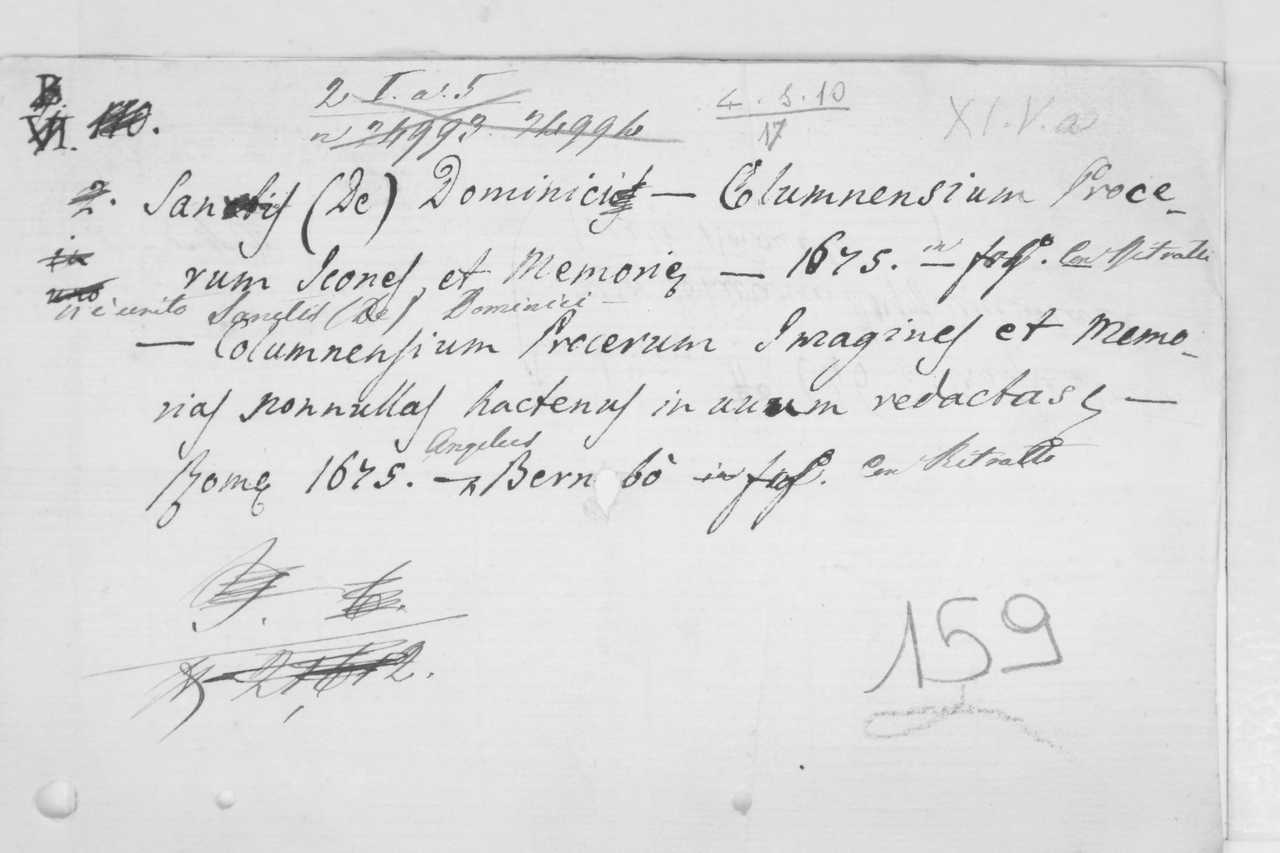 B
VI. 110.
2 I. a. 5
n 24993 24994
4. S. 10
17
XI.V.a
2. Sanctis (De) Dominici — Columnensium Proce-
in rum Icones, et Memorię — 1675. in fol. Con Ritratti
uno
Vi è unito Sanctis (De) Dominici —
— Columnensium Procerum Imagines et Memo-
rias nonnullas hactenus in unum redactas —
Romę 1675. — Angelus Bernabò in fol. Con Ritratto
159